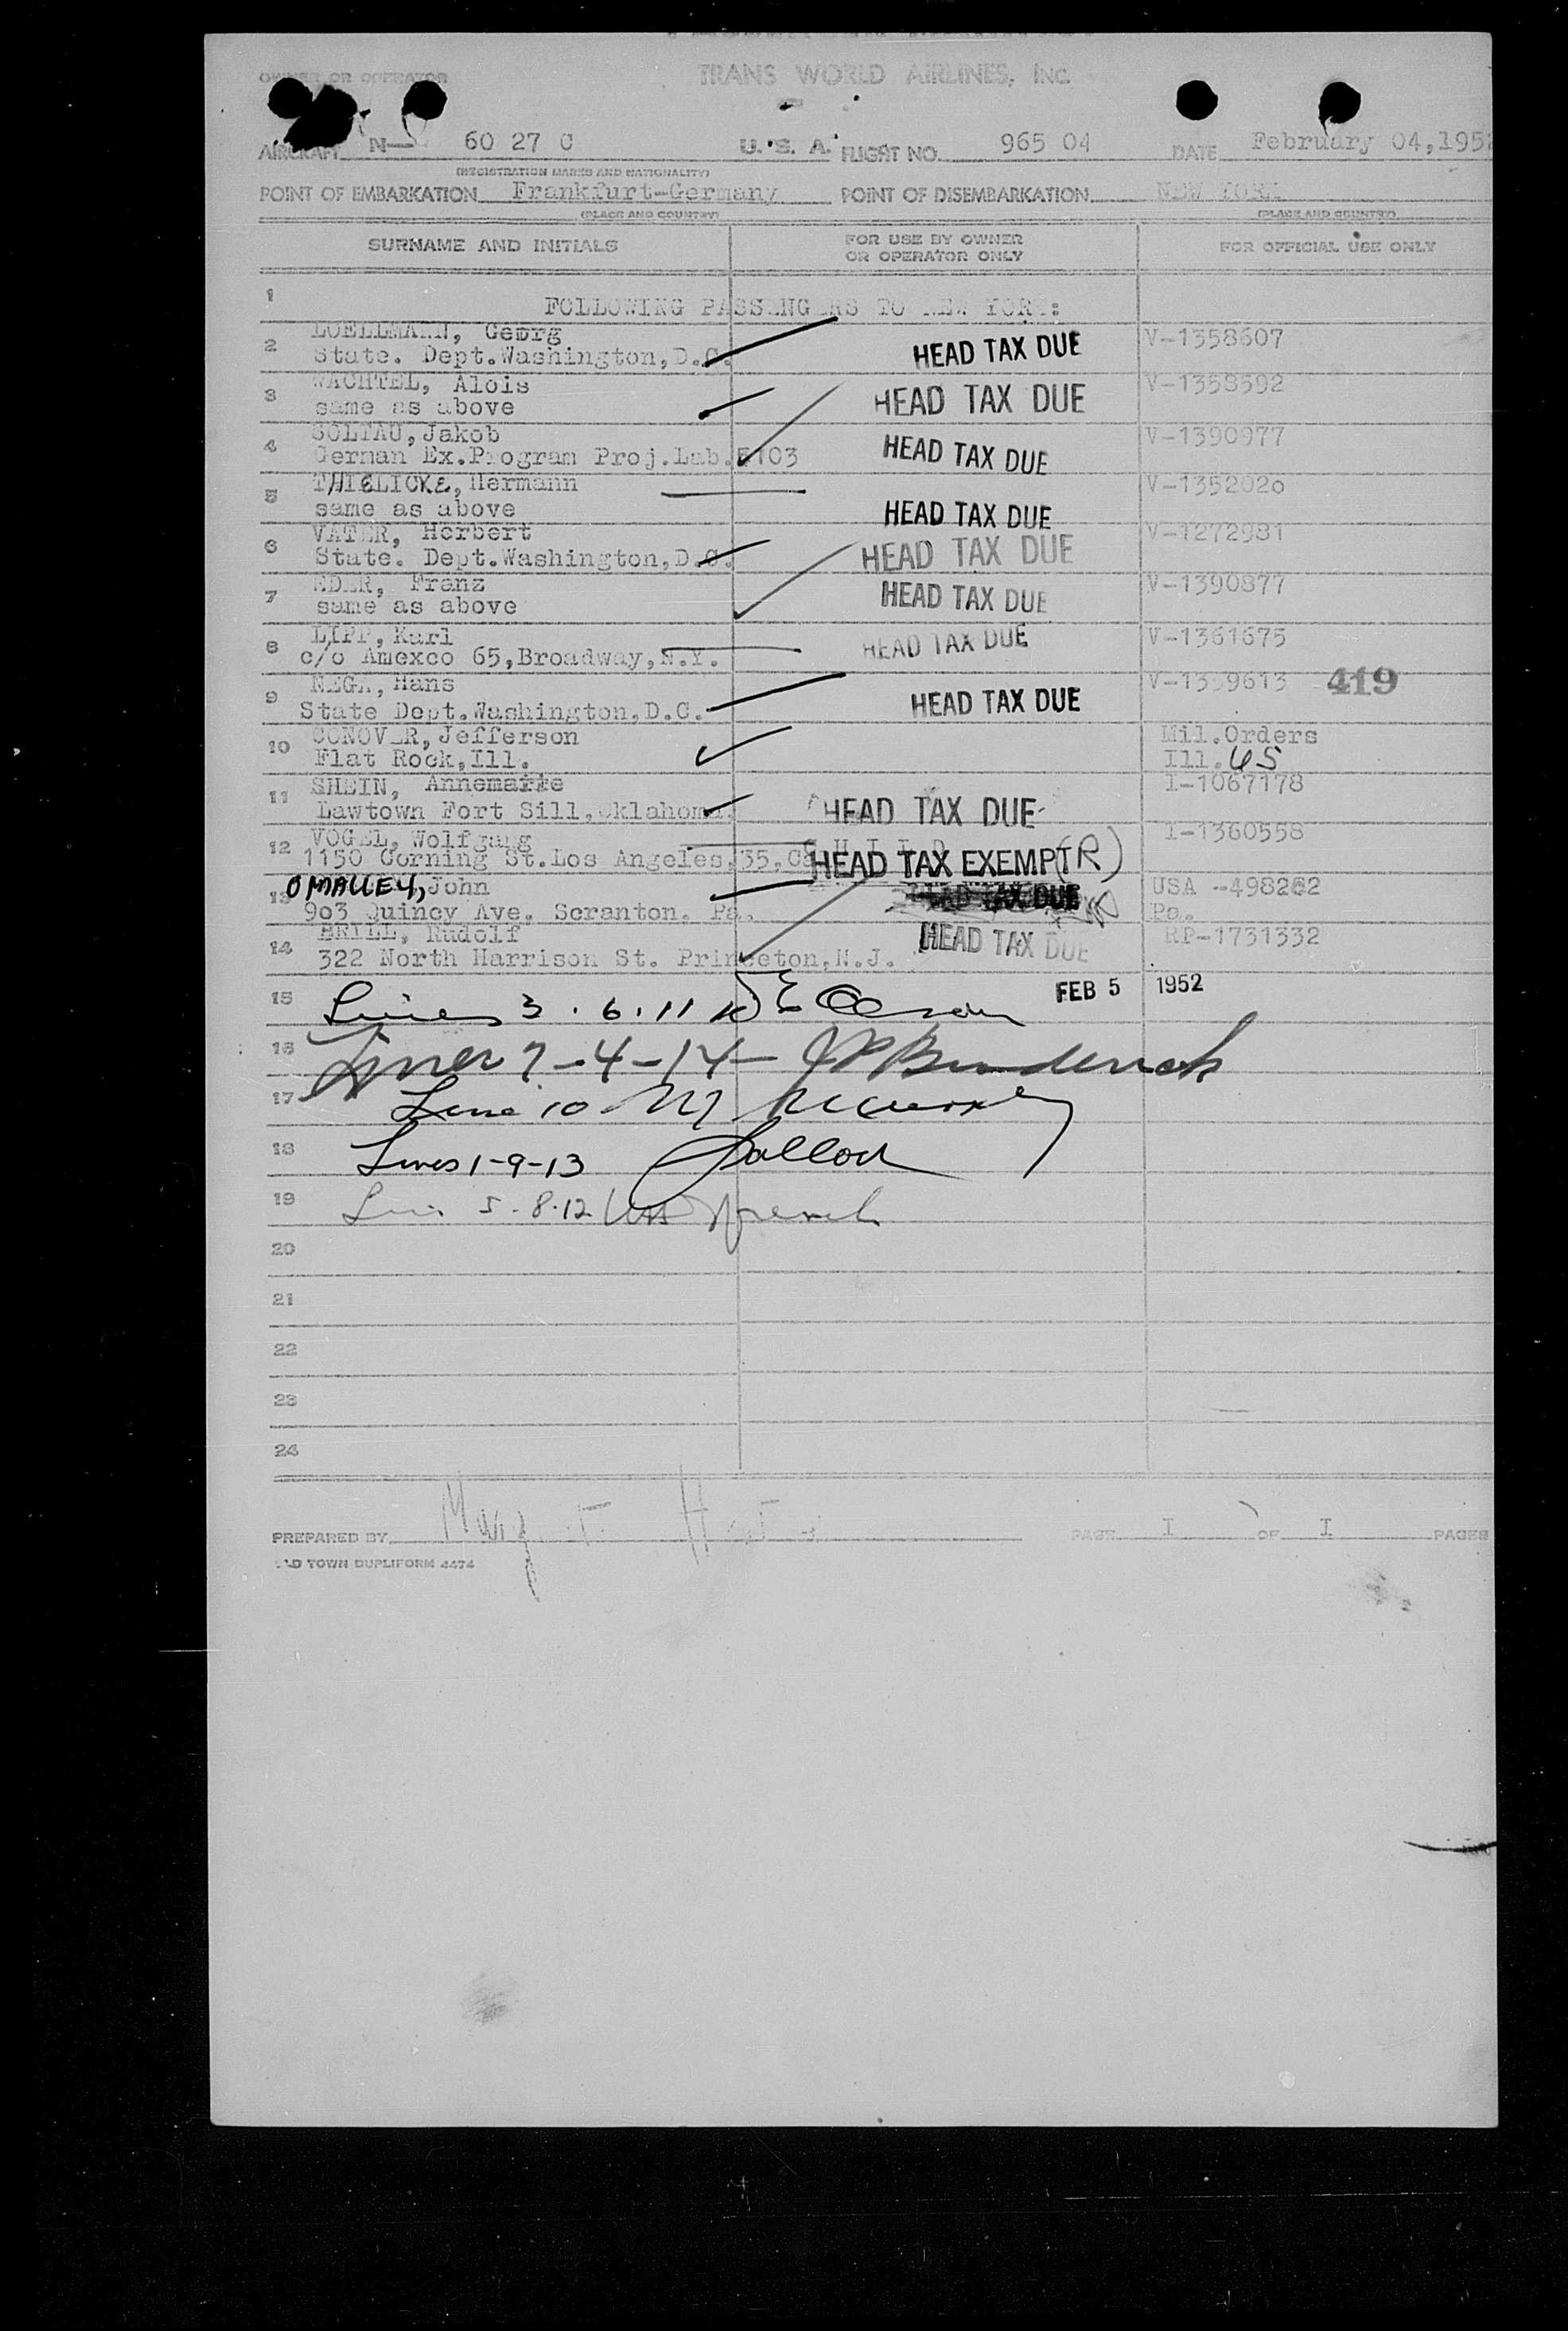 OWNER OR OPERATOR TRANS WORLD AIRLINES, INC.
AIRCRAFT N- 60 27 C U. S. A. FLIGHT NO. 965 04 DATE February 04,1952
(REGISTRATION MARKS AND NATIONALITY)
POINT OF EMBARKATION Frankfurt-Germany POINT OF DISEMBARKATION NEW YORK
(PLACE AND COUNTRY) (PLACE AND COUNTRY)
SURNAME AND INITIALS FOR USE BY OWNER OR OPERATOR ONLY FOR OFFICIAL USE ONLY
1 FOLLOWING PASSENGERS TO NEW YORK:
2 LOELLMANN, Georg V-1358607
State. Dept.Washington,D.C. HEAD TAX DUE
3 WACHTEL, Alois V-1358592
same as above HEAD TAX DUE
4 SOLTAU,Jakob V-1390977
German Ex.Program Proj.Lab. 5103 HEAD TAX DUE
5 THIELICKE,Hermann V-1352020
same as above HEAD TAX DUE
6 VATER, Herbert V-1272981
State. Dept.Washington,D.C. HEAD TAX DUE
7 EDER, Franz V-1390877
same as above HEAD TAX DUE
8 LIPP,Karl V-1361675
c/o Amexco 65,Broadway,N.Y. HEAD TAX DUE
9 Hans 419
State Dept.Washington,D.C. HEAD TAX DUE
10 CONOVER,Jefferson Mil.Orders
Flat Rock,Ill. Ill. US
11 SHEIN, Annemarie I-1067178
Lawtown Fort Sill,Oklahoma. HEAD TAX DUE
12 VOGEL,Wolfgang CHILD I-1360558
1150 Corning St.Los Angeles,35,Ca HEAD TAX EXEMPT (R)
13 OMALLEY,John USA -498262
903 Quincy Ave. Scranton. Pa. HEAD TAX DUE Pa.
14 BRILL, Rudolf RP-1731332
322 North Harrison St. Princeton,N.J. HEAD TAX DUE
15 Lines 3 . 6 . 11 FEB 5 1952
16 Lines 7-4-14-
17 Line 10
18 Lines 1-9-13
19 5-8-12
20
21
22
23
24
PREPARED BY PAGE I OF I PAGES
OLD TOWN DUPLIFORM 4474